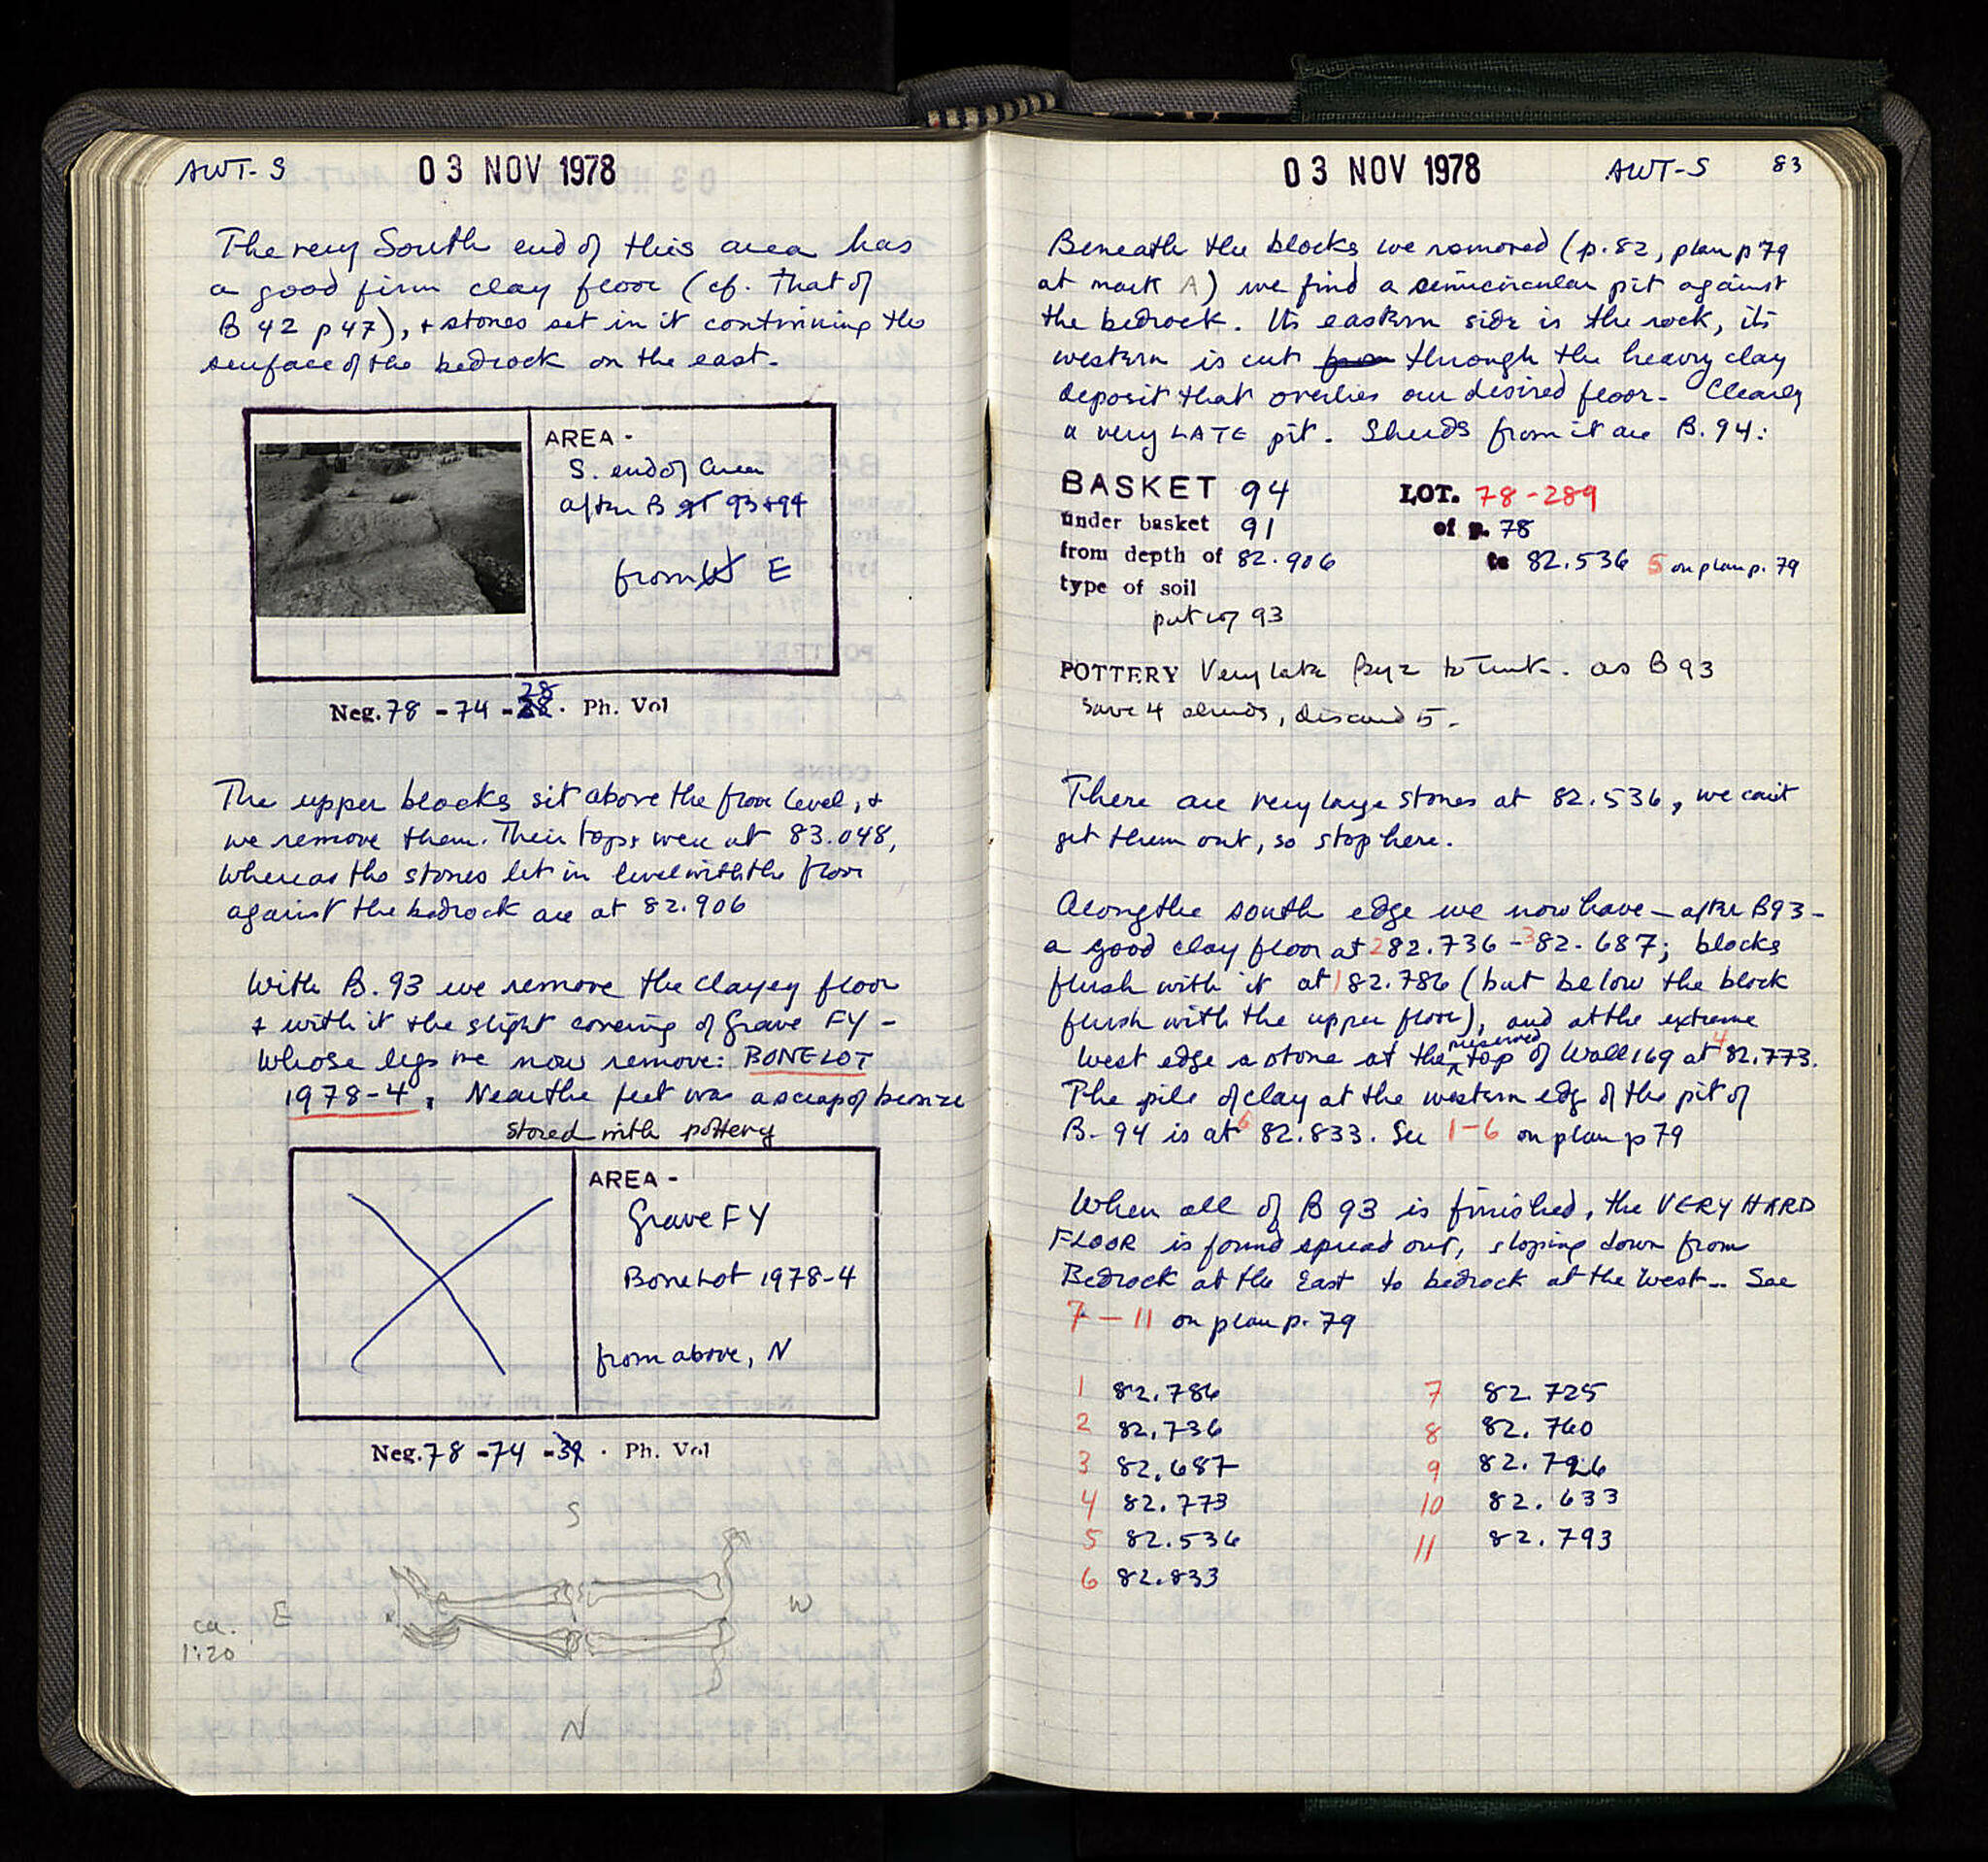 AWT-S 03 NOV 1978
The very South end of this area has
a good firm clay floor (cf. that of
B 42 p 47), + stones set in it continuing the
surface of the bedrock on the east.
AREA -
S. end of area
after B 93+94
from E
Neg. 78 - 74 - 28 . Ph. Vol
The upper blocks sit above the floor level, +
we remove them. Their tops were at 83.048,
whereas the stones let in level with the floor
against the bedrock are at 82.906
With B. 93 we remove the clayey floor
+ with it the slight covering of Grave FY -
whose legs we now remove: BONE LOT
1978-4. Near the feet was a scrap of bronze
stored with pottery
AREA -
Grave FY
Bone Lot 1978-4
from above, N
Neg. 78 - 74 - . Ph. Vol
S
E
W
ca.
1:20
N
03 NOV 1978 AWT-S 83
Beneath the blocks we removed (p. 82, plan p 79
at mark A) we find a semicircular pit against
the bedrock. Its eastern side is the rock, its
western is cut through the heavy clay
deposit that overlies our desired floor. Clearly
a very LATE pit. Sherds from it are B. 94:
BASKET 94 LOT. 78-289
under basket 91 of p. 78
from depth of 82.906 to 82.536 5 on plan p. 79
type of soil
put w/ 93
POTTERY Very late Byz to Turk. as B 93
Save 4 sherds, discard 5.
There are very large stones at 82.536, we can't
get them out, so stop here.
Along the south edge we now have - after B93 -
a good clay floor at 2 82.736 - 3 82.687; blocks
flush with it at 1 82.786 (but below the block
flush with the upper floor), and at the extreme
west edge a stone at the preserved top of Wall 169 at 4 82.773.
The pile of clay at the western edge of the pit of
B. 94 is at 6 82.833. See 1-6 on plan p 79
When all of B 93 is finished, the VERY HARD
FLOOR is found spread out, sloping down from
Bedrock at the East to bedrock at the West. See
7 - 11 on plan p. 79
1 82.786 7 82.725
2 82.736 8 82.760
3 82.687 9
4 82.773 10 82.633
5 82.536 11 82.793
6 82.833